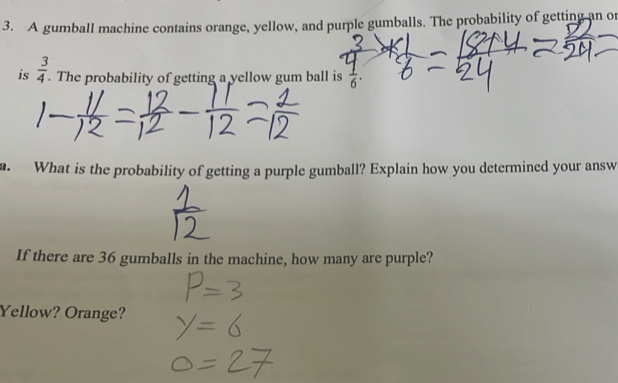 3. A gumball machine contains orange, yellow, and purple gumballs. The probability of getting an or
is 3/4. The probability of getting a yellow gum ball is 1/6.
3/4 × 1/6 = 18+4/24 = 22/24 =
1 - 11/12 = 12/12 - 11/12 = 1/12
a. What is the probability of getting a purple gumball? Explain how you determined your answ
1/12
If there are 36 gumballs in the machine, how many are purple?
P=3
Yellow? Orange?
Y=6
O=27